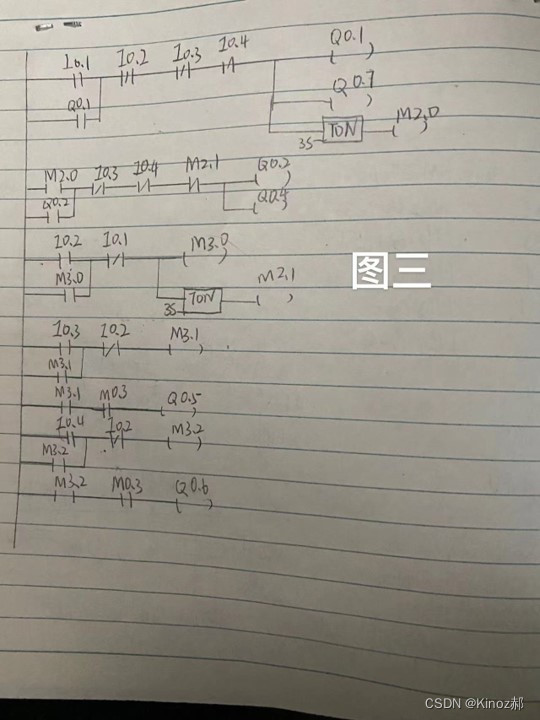 I0.1 I0.2 I0.3 I0.4 Q0.1
Q0.1 Q0.7
3S TON M2.0
M2.0 I0.3 I0.4 M2.1 Q0.2
Q0.2 Q0.4
I0.2 I0.1 M3.0
M3.0 3S TON M2.1
图三
I0.3 I0.2 M3.1
M3.1
M3.1 M0.3 Q0.5
I0.4 I0.2 M3.2
M3.2
M3.2 M0.3 Q0.6
CSDN @Kinoz郝